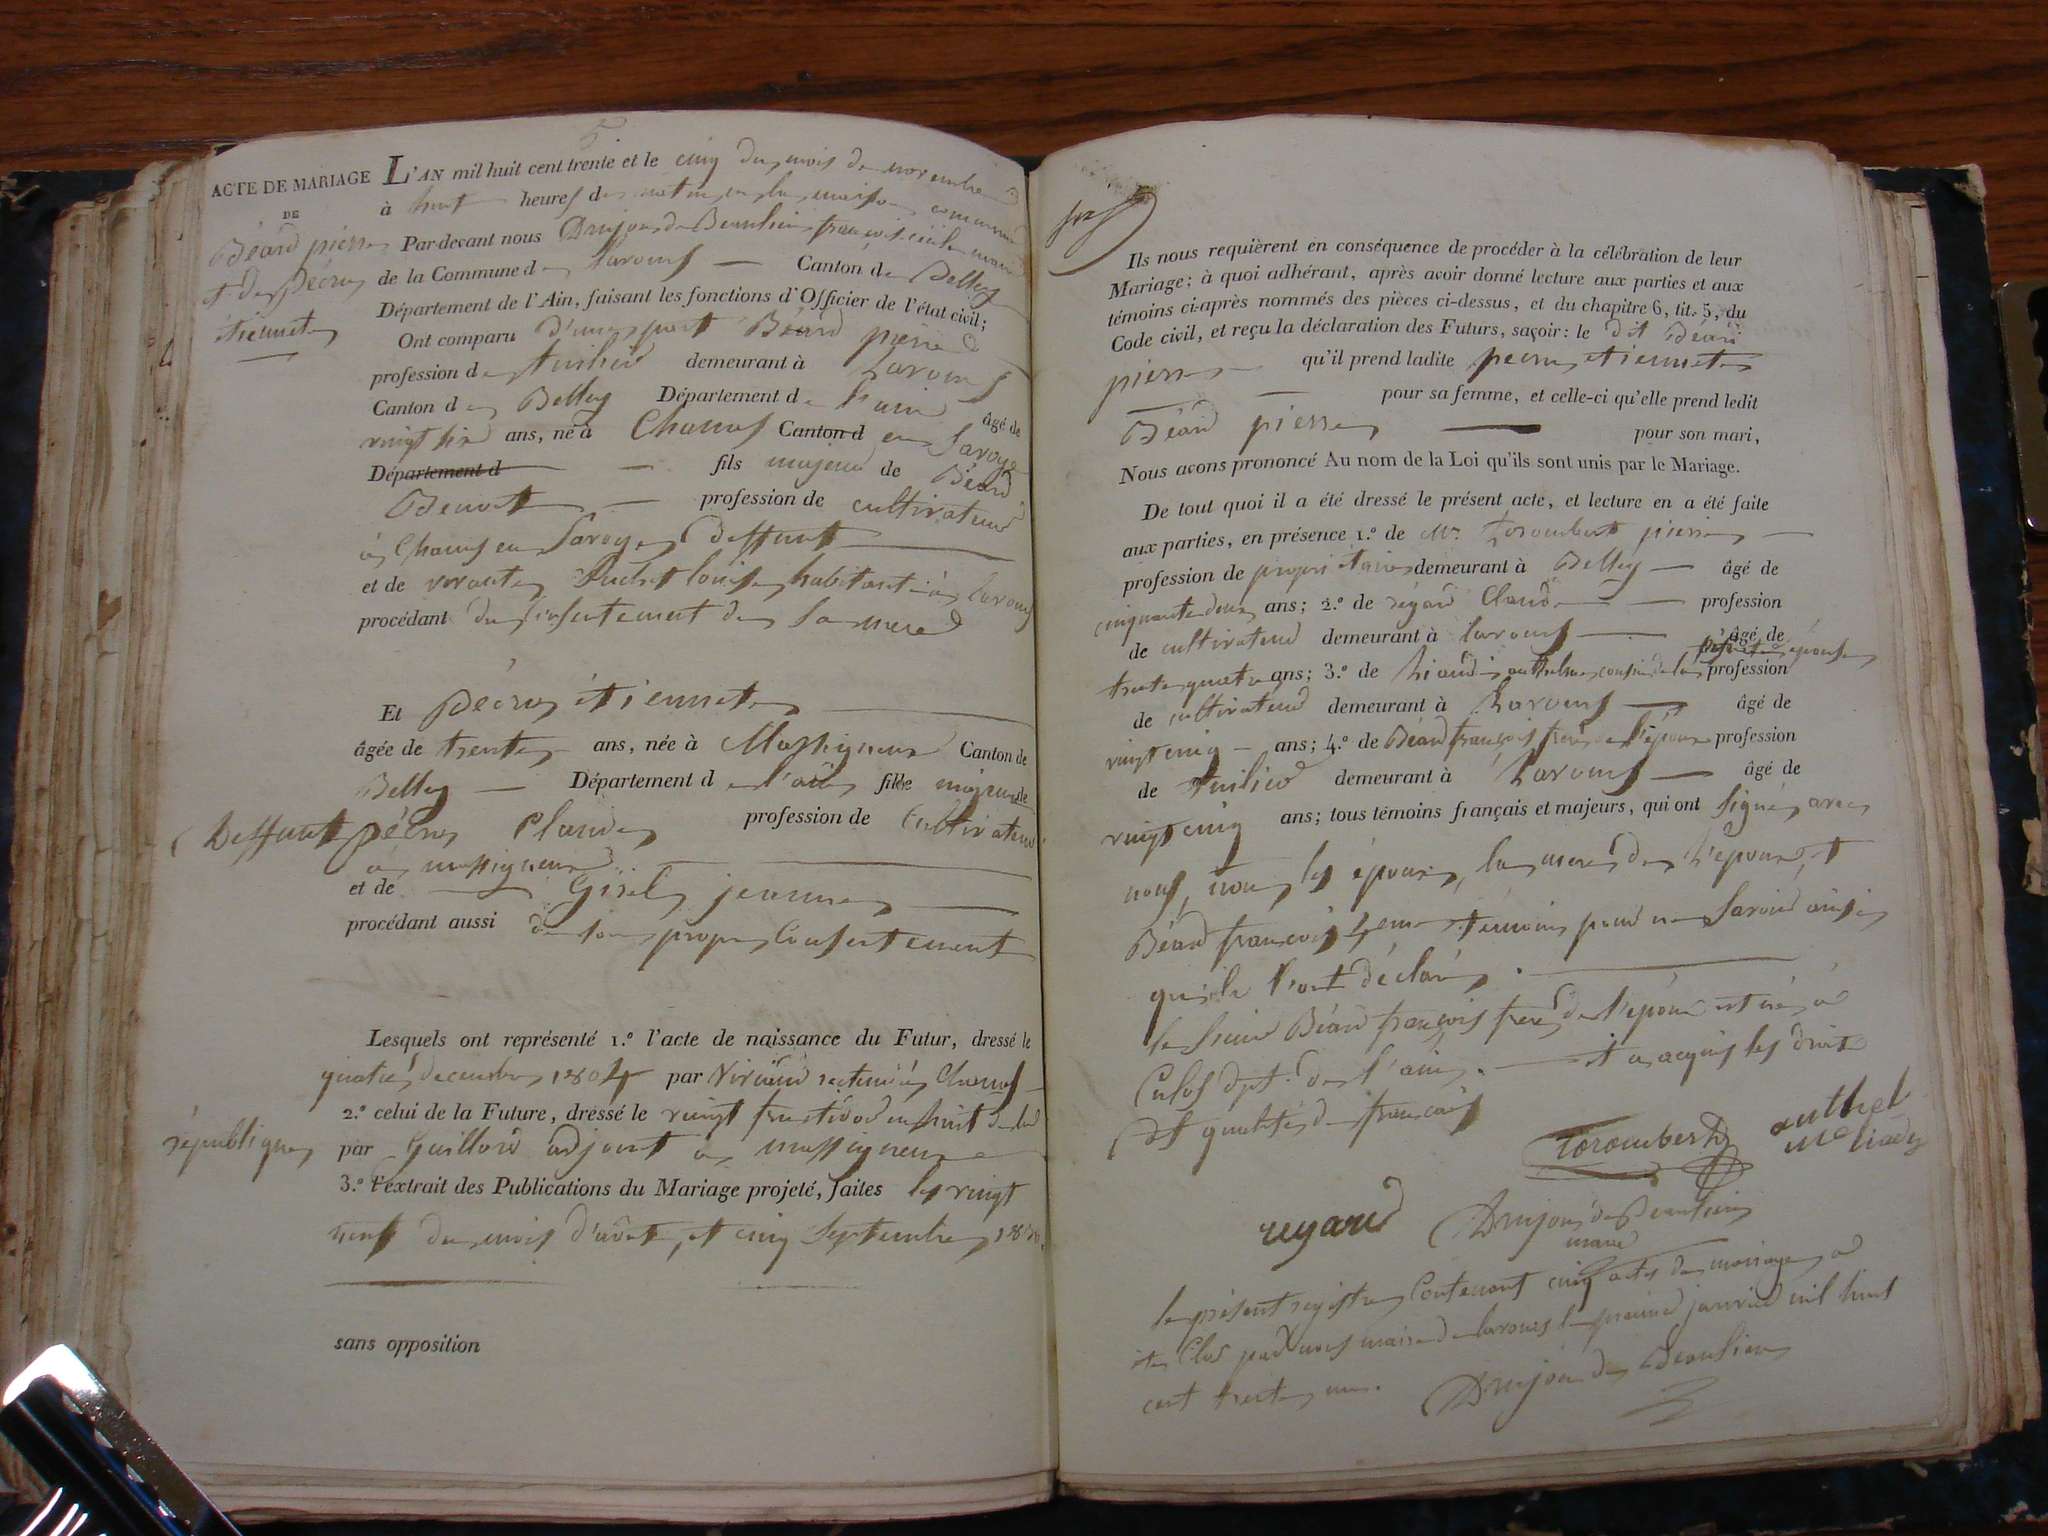 5
ACTE DE MARIAGE
DE
Béard pierre
et de Pécruz
étiennete
L'AN mil huit cent trente et le cinq du mois de novembre
à huit heures du matin en la maison commune
Par-devant nous Drujon de Beaulieu françois maire
de la Commune de Lavours — Canton de Belley
Département de l'Ain, faisant les fonctions d'Officier de l'état civil;
Ont comparu d'une part Béard pierre
profession de tuilier demeurant à Lavours
Canton de Belley Département de l'ain âgé de
vingt six ans, né à Chanas Canton d en Savoye
Département d — fils majeur de Béard
Benoit — profession de cultivateur
à Chanas en Savoye deffunt
et de vivante louise habitant à lavours
procédant du consentement de sa mere
Et Pécruz étiennete
âgée de trente ans, née à Massigneux Canton de
Belley — Département de l'ain fille majeure de
Deffunt pécruz Claude profession de Cultivateur
à massigneux
et de Gisel jeanne
procédant aussi de son propre Consentement
Lesquels ont représenté 1.º l'acte de naissance du Futur, dressé le
quatre decembre 1804 par recteur à Chanas
2.º celui de la Future, dressé le vingt fructidor an huit de la
république par Guilland adjoint à massigneux
3.º l'extrait des Publications du Mariage projeté, faites les vingt
neuf du mois d'août, et cinq Septembre 1830.
sans opposition
Ils nous requièrent en conséquence de procéder à la célébration de leur
Mariage; à quoi adhérant, après avoir donné lecture aux parties et aux
témoins ci-après nommés des pièces ci-dessus, et du chapitre 6, tit. 5, du
Code civil, et reçu la déclaration des Futurs, saçoir: le dit Béard
pierre qu'il prend ladite pecruz etiennete
— pour sa femme, et celle-ci qu'elle prend ledit
Béard pierre — pour son mari,
Nous avons prononcé Au nom de la Loi qu'ils sont unis par le Mariage.
De tout quoi il a été dressé le présent acte, et lecture en a été faite
aux parties, en présence 1.º de Mr. Torombert pierre —
profession de propriétaire demeurant à Belley — âgé de
cinquante deux ans; 2.º de régard Claude — profession
de cultivateur demeurant à lavours — âgé de
trente quatre ans; 3.º de Liaudi anthelme cousin de la épouse profession
de cultivateur demeurant à Lavours — âgé de
vingt cinq — ans; 4.º de Béard françois frere de l'époux profession
de tuilier demeurant à Lavours — âgé de
vingt cinq ans; tous témoins français et majeurs, qui ont signés avec
nous, non les époux, la mere de l'époux, et
Béard françois 4eme témoin pour ne Savoir ainsi
qu'ils l'ont déclaré. —
le sieur Béard françois frere de l'époux est né à
Culos dpt. de l'ain. — et a acquis les droits
et qualités de français
Torombert
anthel
me liady
regard
Drujon de Beaulieu
maire
le présent registre Contenant cinq actes de mariage a
été Clos par nous maire de lavours le premier janvier mil huit
cent trente un.
Drujon de Beaulieu